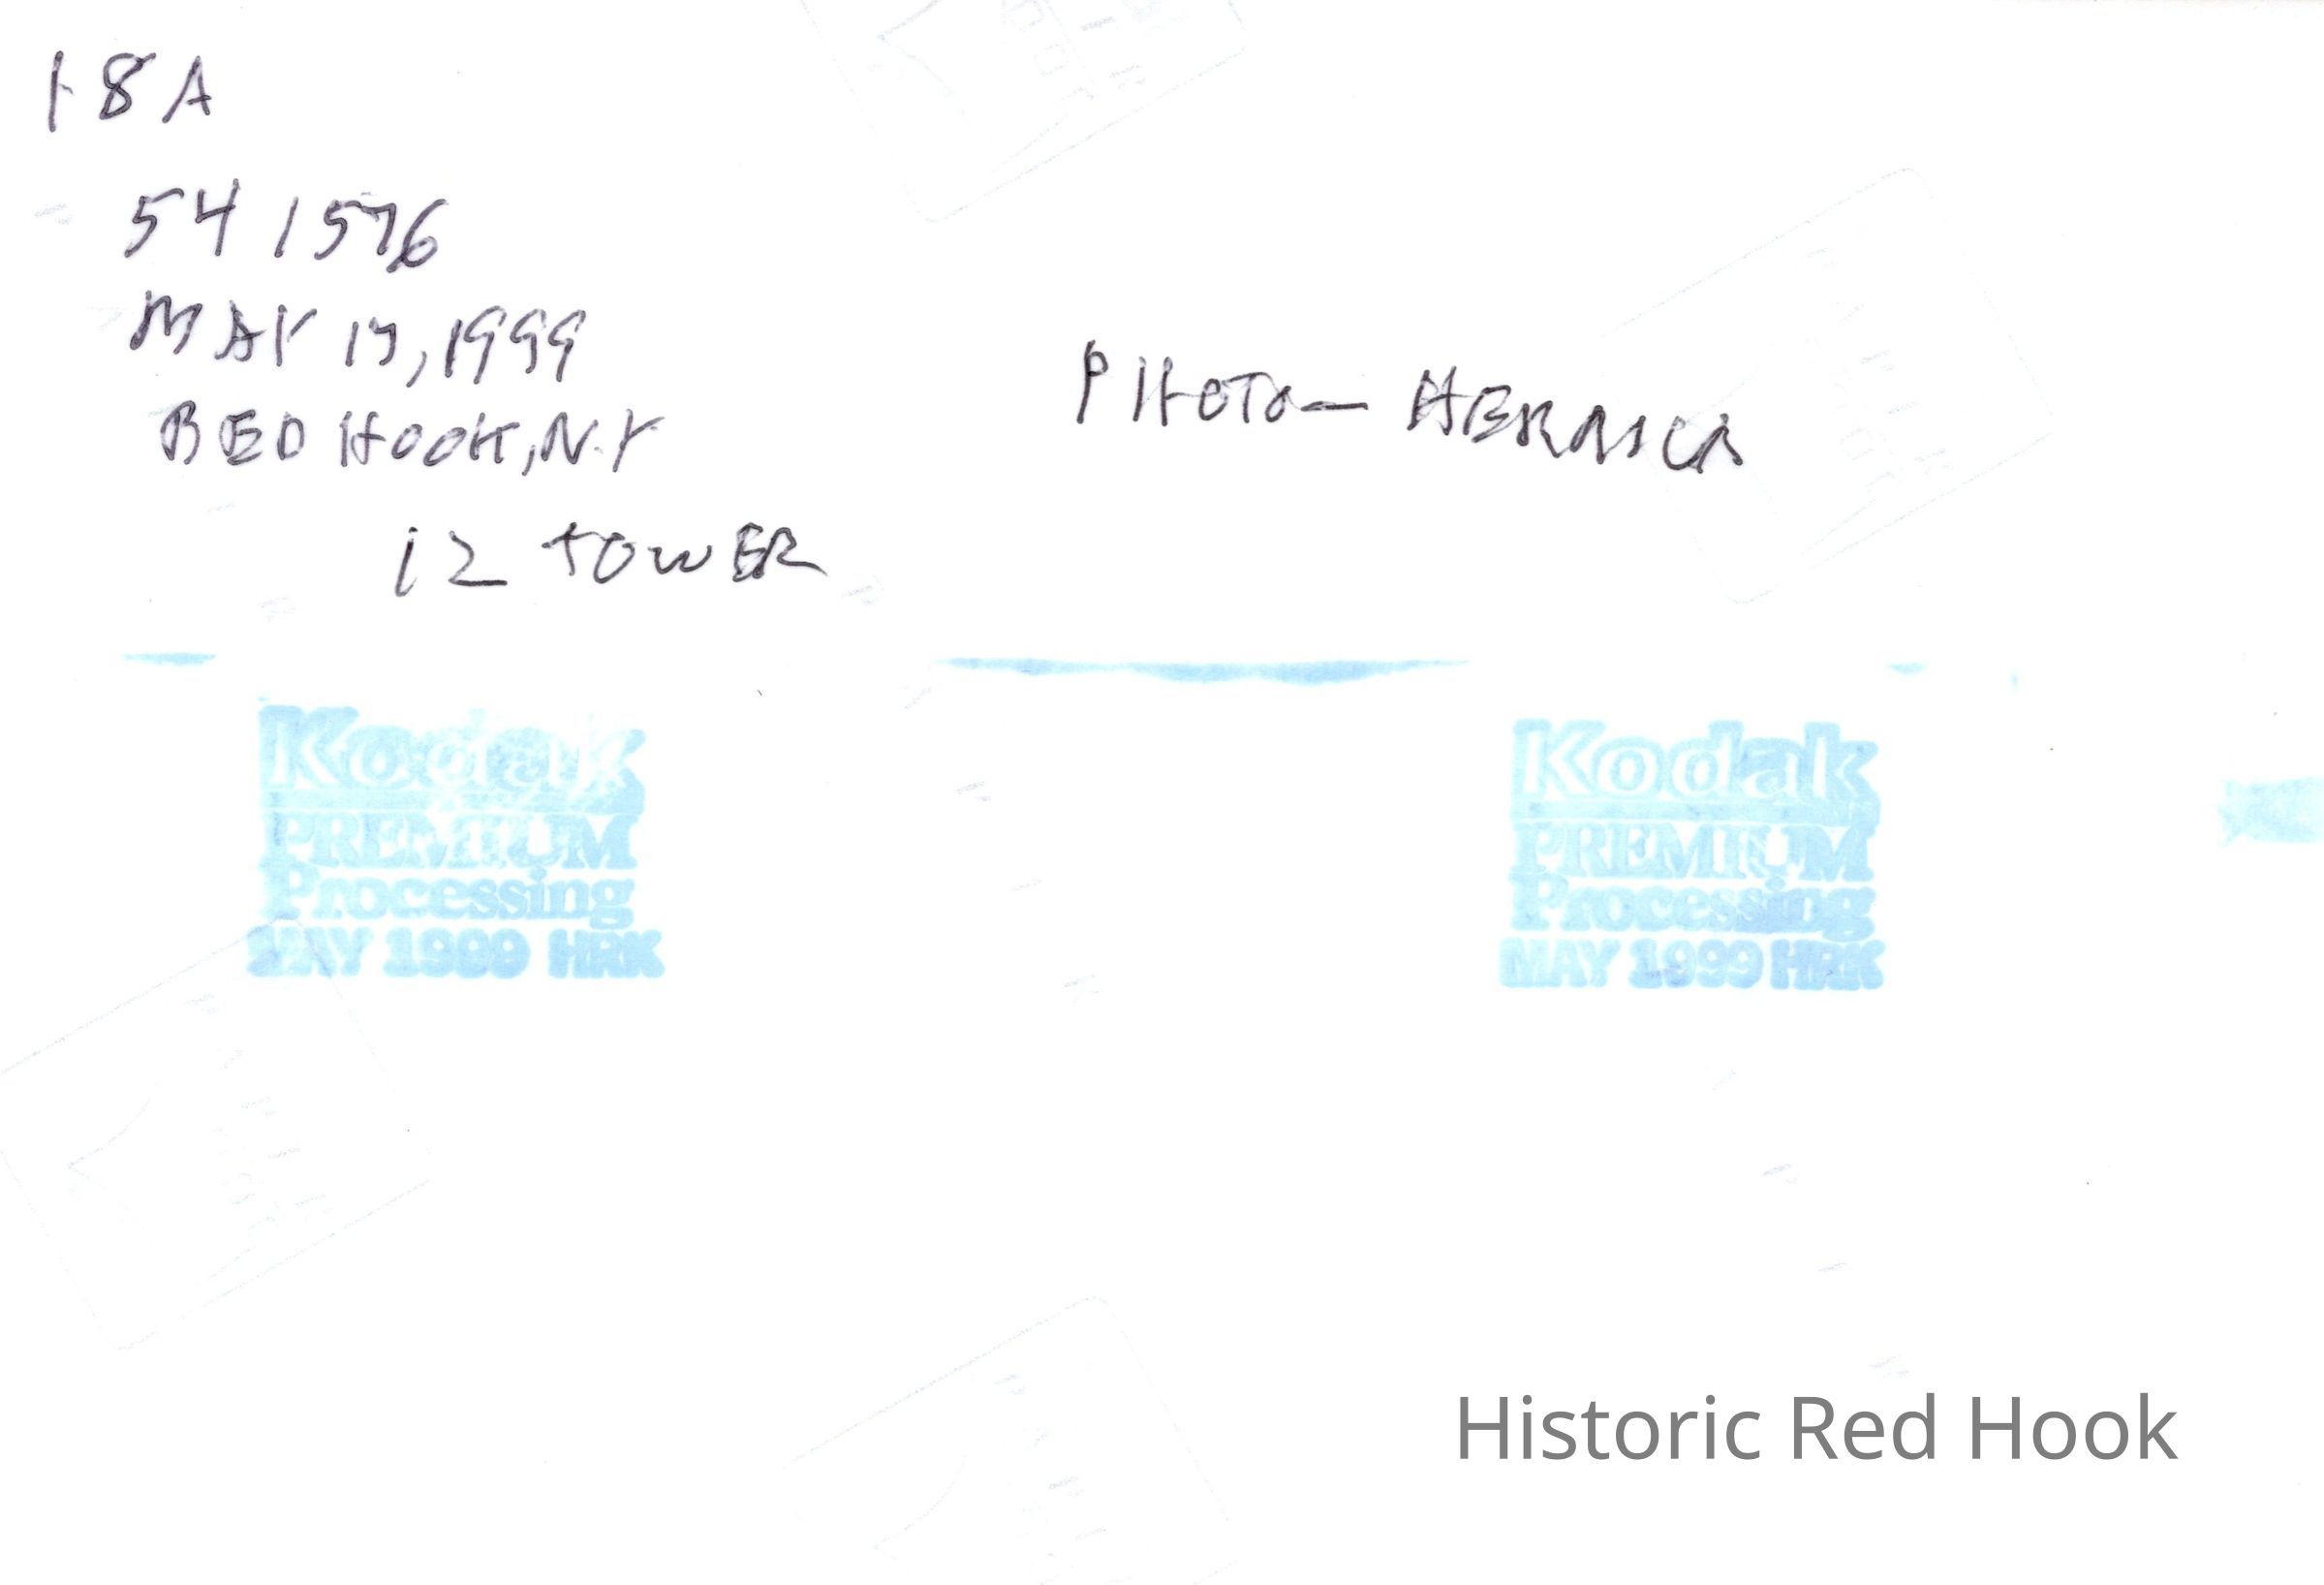 18A
541576
MAY 17, 1999
RED HOOK, N.Y
PHOTO —
12 TOWER
Kodak
PREMIUM
Processing
MAY 1999 HRK
Kodak
PREMIUM
Processing
MAY 1999 HRK
Historic Red Hook